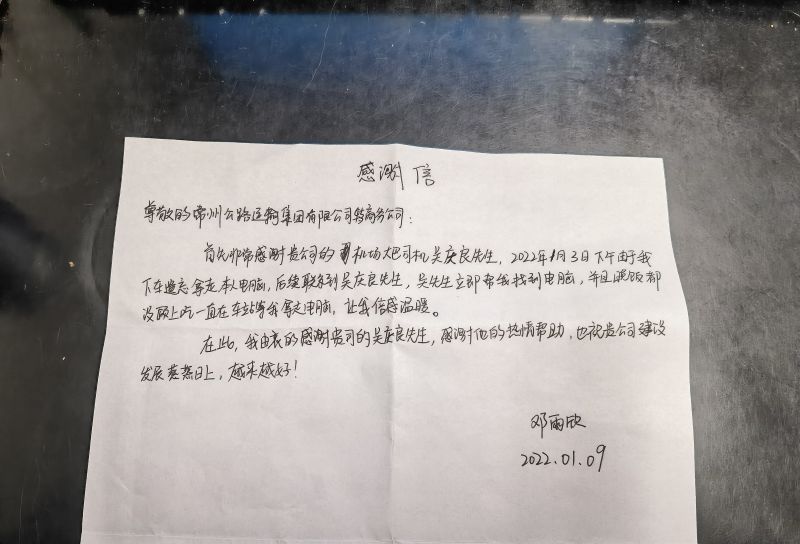 感谢信
尊敬的常州公路运输集团有限公司务商务公司：
首先非常感谢贵公司的机场大巴司机吴庆良先生，2022年1月3日下午由于我
下车遗忘拿走本人电脑，后续联系到吴庆良先生，吴先生立即帮我找到电脑，并且晚饭都
没顾上吃一直在车站等我拿走电脑，让我倍感温暖。
在此，我由衷的感谢贵司的吴庆良先生，感谢他的热情帮助，也祝贵公司建设
发展蒸蒸日上，越来越好！
邓雨欣
2022.01.09